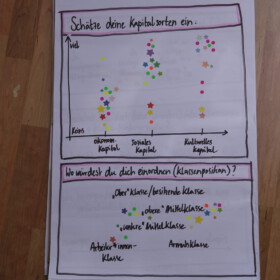 Schätze deine Kapitalsorten ein.
viel
Kein
ökonom. Kapital
Soziales Kapital
Kulturelles Kapital
Wo würdest du dich einordnen (Klassenposition)?
„Ober"klasse/besitzende Klasse
„obere" Mittelklasse
„untere" Mittelklasse
Arbeiter*innen-
Klasse
Armutsklasse